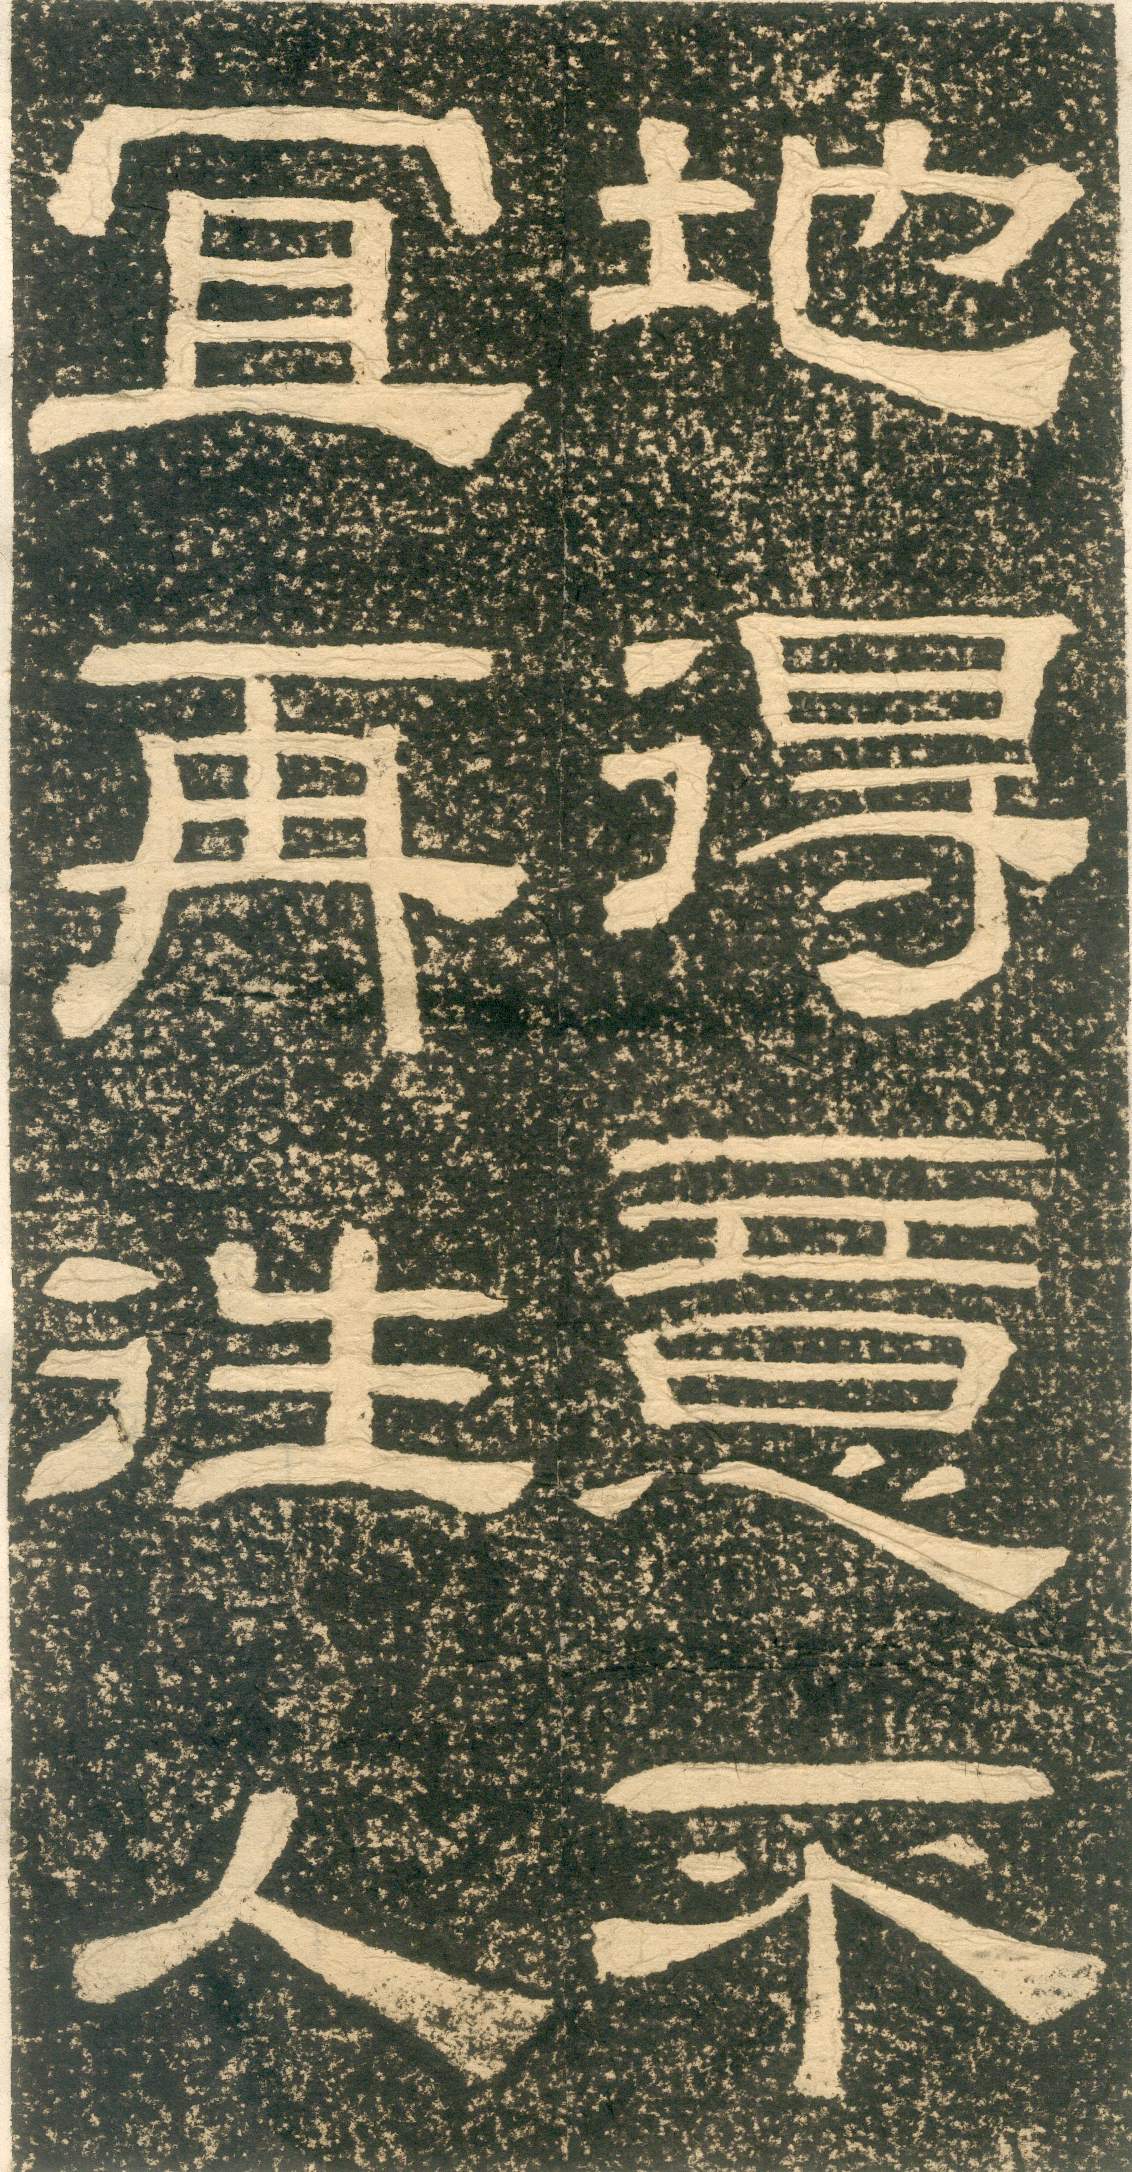 地得意不
宜再往人